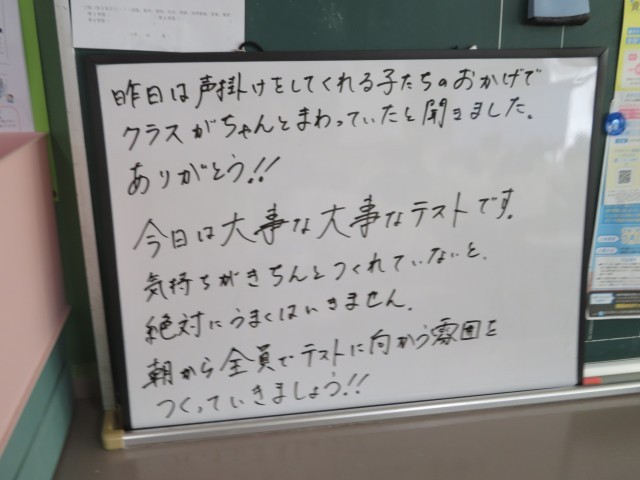 昨日は声掛けをしてくれる子たちのおかげで
クラスがちゃんとまわっていたと聞きました。
ありがとう!!
今日は大事な大事なテストです。
気持ちがきちんとつくれていないと、
絶対にうまくはいきません。
朝から全員でテストに向かう雰囲を
つくっていきましょう!!